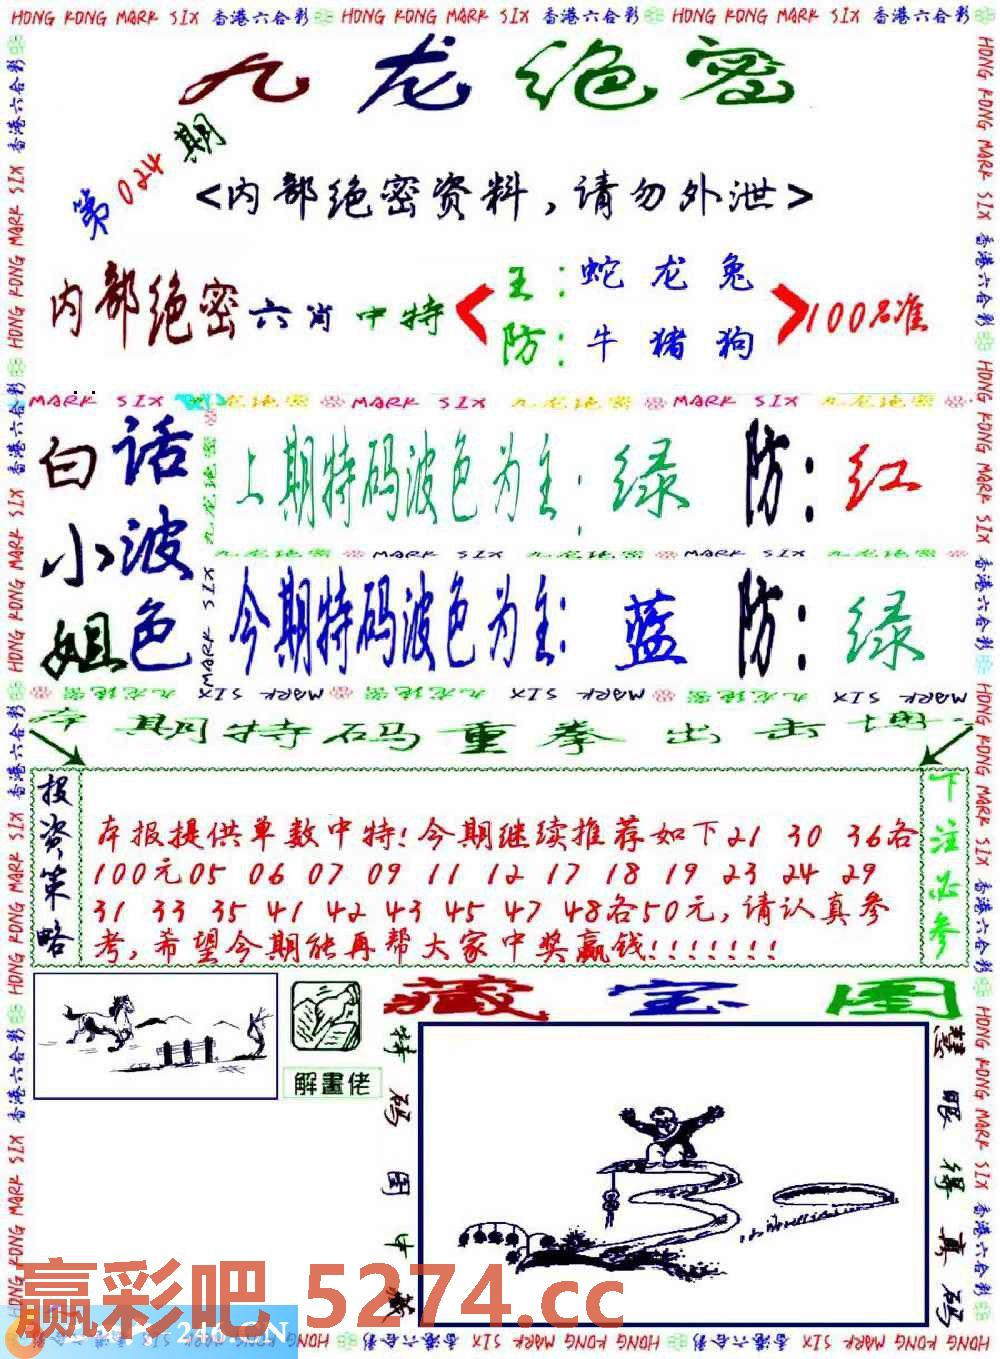 HONG KONG MARK SIX 香港六合彩 HONG KONG MARK SIX 香港六合彩 HONG KONG MARK SIX 香港六合彩
九龙绝密
第024期
<内部绝密资料,请勿外泄>
内部绝密六肖中特
主:蛇龙兔
防:牛猪狗
100%准
MARK SIX 九龙绝密 MARK SIX 九龙绝密 MARK SIX 九龙绝密
白小姐
话波色
上期特码波色为主:绿 防:红
九龙绝密 MARK SIX 九龙绝密 MARK SIX 九龙绝密
今期特码波色为主:蓝 防:绿
本期特码重拳出击
投资策略
本报提供单数中特!今期继续推荐如下21 30 36各
100元05 06 07 09 11 12 17 18 19 23 24 29
31 33 35 41 42 43 45 47 48各50元,请认真参
考,希望今期能再帮大家中奖赢钱!!!!!!!
下注必参
解畫佬
藏宝图
特码图中藏
慧眼得真码
赢彩吧 5274.cc
246.CN